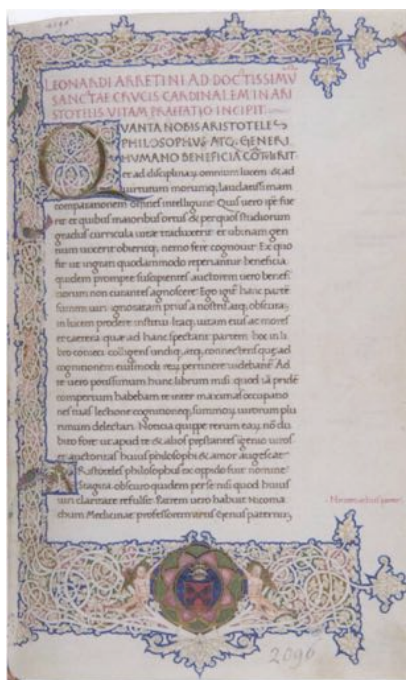 LEONARDI ARRETINI AD DOCTISSIMV
SANCTAE CRVCIS CARDINALEM IN ARI
STOTILIS VITAM PRAEFATIO INCIPIT
QVANTA NOBIS ARISTOTELES
PHILOSOPHVS ATQ, GENERI
HVMANO BENEFICIA CONTVLERIT
et ad disciplinaȝ omnium lucem & ad
uirtutum morumq, laudatissimam
comparationem omnes intelligunt. Quis uero ipse fue
rit et quibus maioribus ortus & per quos studiorum
gradus curricula uitae traduxerit et ubi nam gen
tium uixerit obieritq, nemo fere cognouit. Ex quo
fit ut ingrati quodammodo reperiantur beneficia
quidem prompte suscipientes auctorem uero benefi
tiorum non curantes agnoscere. Ego igit hanc parte
in lucem prodere institui Itaq, uitam eius ac mores
et caetera quae ad hanc spectant partem hoc in li
cognitionem eiusmodi rei pertinere uidebant. Ad
te uero potissimum hunc librum misi quod iã pridē
compertum habebam te inter maximas occupatio
nes tuas lectione cognitioneq, summoȝ uirorum plu
rimum delectari. Notitia quippe rerum eaȝ nõ du
bito fore ut apud te & alios prestantes igenio uiros
et auctoritas huius philosophi & amor augescat
Aristoteles philosophus ex oppido fuit nomine
Stagira obscuro quidem per se nisi quod huius
uiri claritate refulsit. Patrem uero habuit Nicoma
chum Medicinae professorem
2096